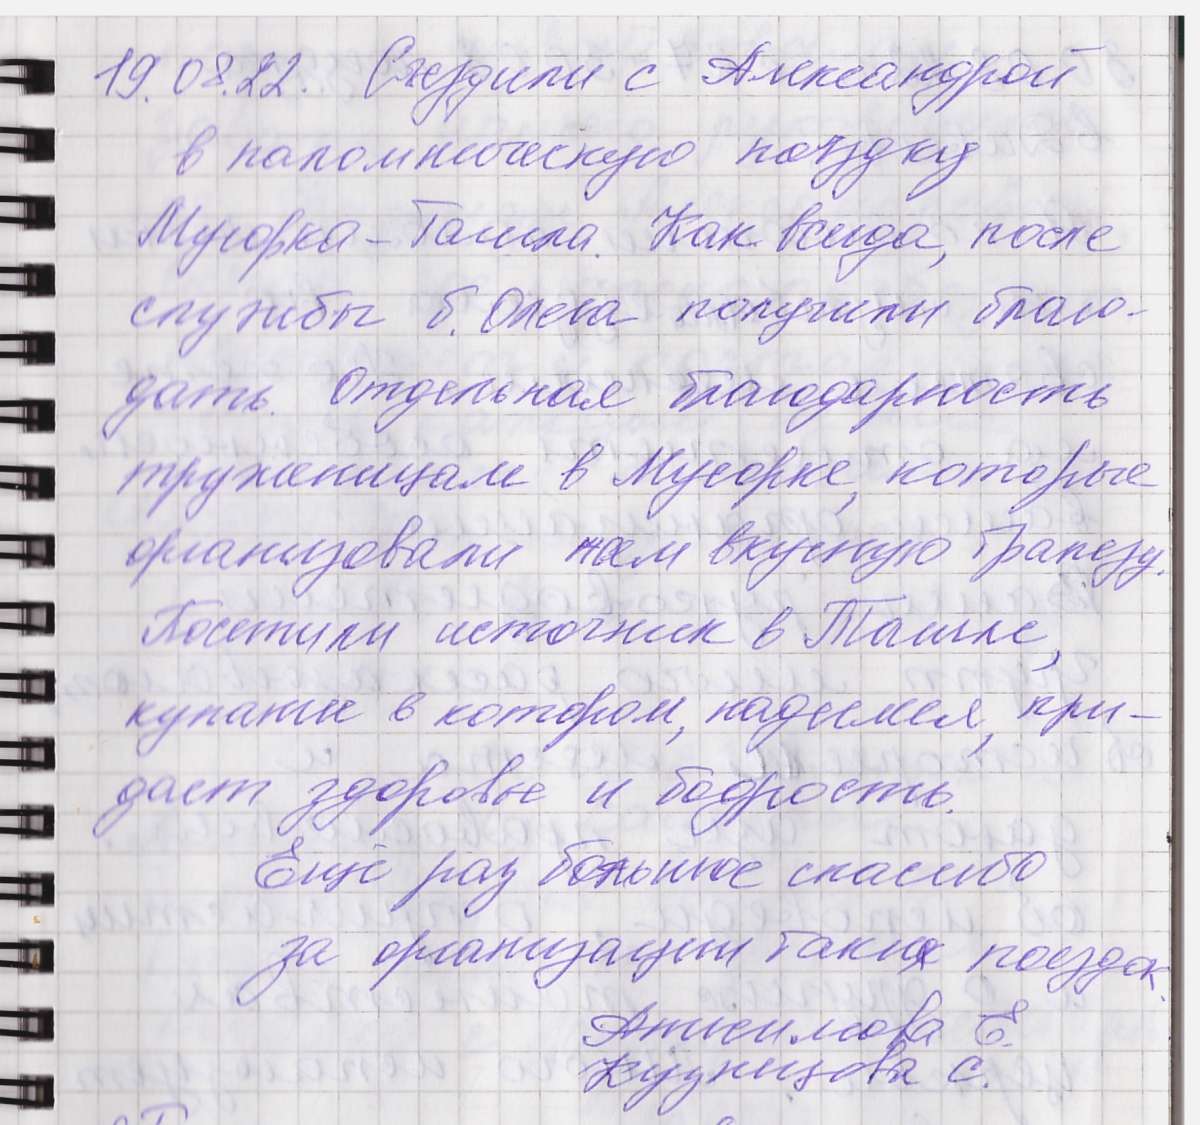 19.08.22. Съездили с Александрой
в паломническую поездку
Мусорка - Ташла. Как всегда, после
службы б. Олега получили благо-
дать. Отдельная благодарность
труженицам в Мусорке, которые
организовали нам вкусную трапезу.
Посетили источник в Ташле,
купание в котором, надеемся, при-
даст здоровье и бодрость.
Ещё раз большое спасибо
за организации таких поездок.
Анисимова Е.
Кузнецова С.